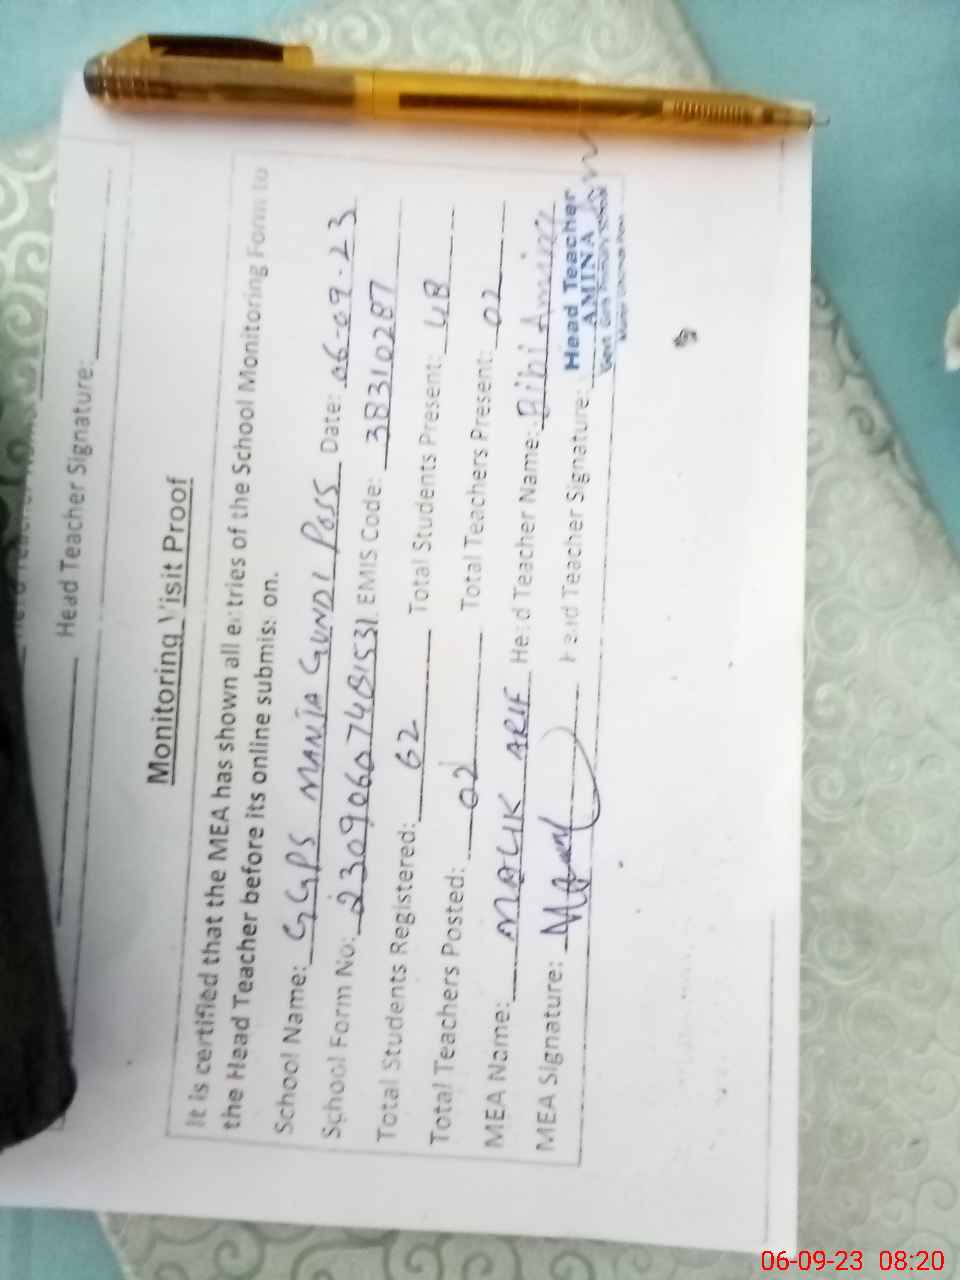 Head Teacher Signature:
Monitoring Visit Proof
It is certified that the MEA has shown all entries of the School Monitoring Form to
the Head Teacher before its online submission.
School Name: GGPS MANJA GUNDI POSS Date: 06-09-23
School Form No: 230906074B1531 EMIS Code: 38310287
Total Students Registered: 62 Total Students Present: 48
Total Teachers Posted: 02 Total Teachers Present: 02
MEA Name: MALIK ARIF Head Teacher Name: Bibi Amina
MEA Signature: Head Teacher Signature:
Head Teacher
AMINA
Govt Girls Primary School
06-09-23 08:20